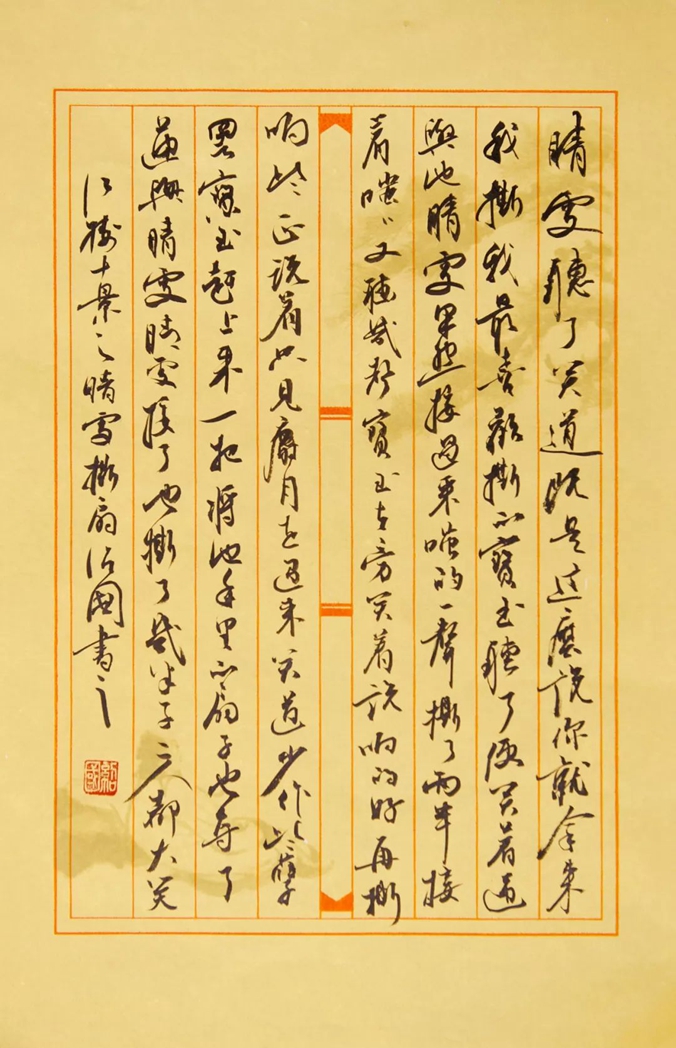 晴雯聽了笑道既是这麼說你就拿來
我撕我最喜歡撕的寶玉聽了便笑着遞
與他晴雯果然接過來嗤的一聲撕了兩半接
着嗤〻又聽幾聲寶玉在旁笑着説响的好再撕
响些正説着只見麝月走過來笑道少作些孽
罷寶玉趕上來一把將他手里的扇子也奪了
遞與晴雯晴雯接了也撕了幾半子二人都大笑
紅樓十景之晴雯撕扇紹國書之
紹國